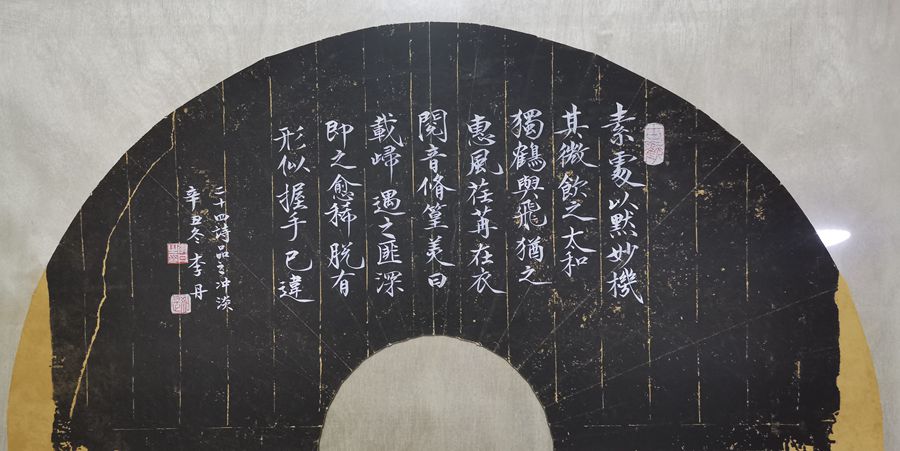 素處以默妙機
其微飲之太和
獨鶴與飛猶之
惠風荏苒在衣
閱音脩篁美曰
載歸遇之匪深
即之愈稀脫有
形似握手已違
二十四詩品之冲淡
辛丑冬李丹